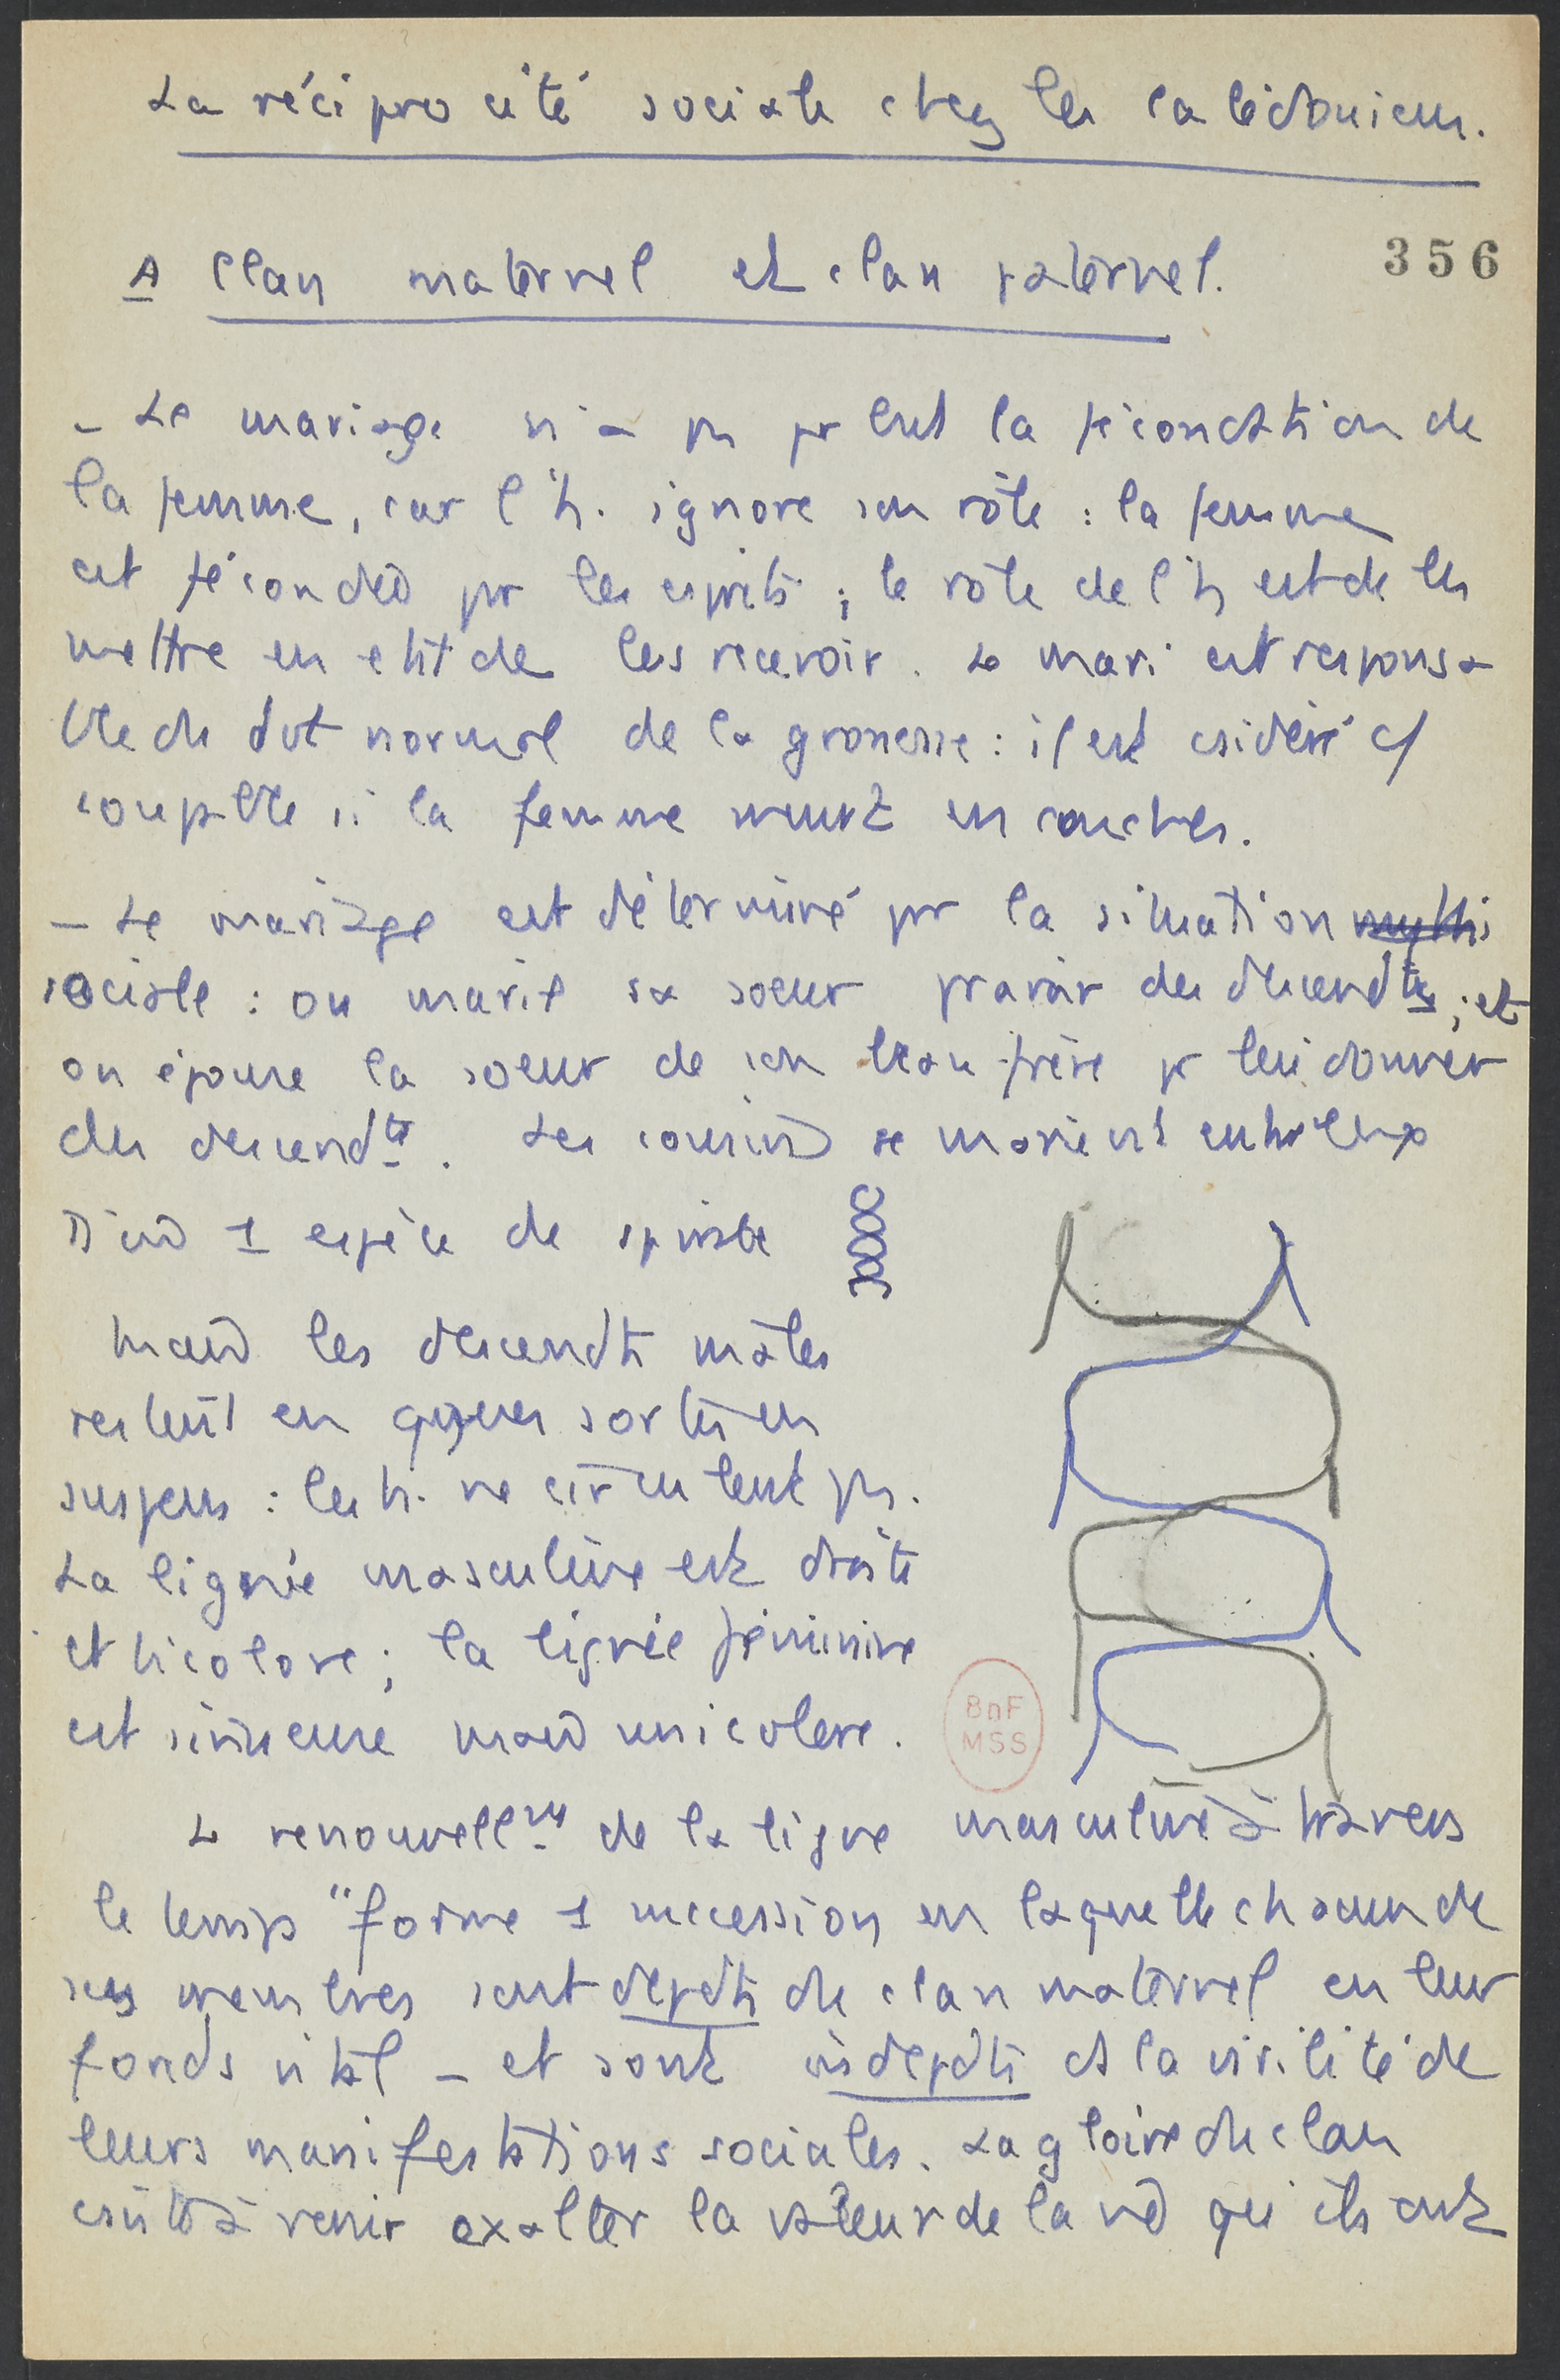 La réciprocité sociale chez les calédoniens.
A Clan maternel et clan paternel.
356
- Le mariage n'a ps pr but la fécondation de
la femme, car l'h. ignore son rôle : la femme
est fécondée pr les esprits ; le rôle de l'h est de les
mettre en état de les recevoir. Le mari est responsa-
ble du état normal de la grossesse : il est csidéré c/
coupable si la femme meurt en couches.
- Le mariage est déterminé pr la situation mythi
sociale : on marie sa soeur pr avoir des descendts ; et
on épouse la soeur de son beau-frère pr lui donner
des descendts. Les cousins se marient entre eux
Ds 1 espèce de spirale
Mais les descendts mâles
restent en qque sorte en
suspens : les h. ne circulent ps.
La lignée masculine est droite
et bicolore ; la lignée féminine
est sinueuse mais unicolore.
BnF
MSS
Le renouvellmt de la ligne masculine à travers
le temps "forme 1 succession en laquelle chacun de
ses membres sont dépdts du clan maternel en leur
fonds vital - et sont indépdts ds la virilité de
leurs manifestations sociales. La gloire du clan
csiste à venir exalter la valeur de la vie qu'ils ont